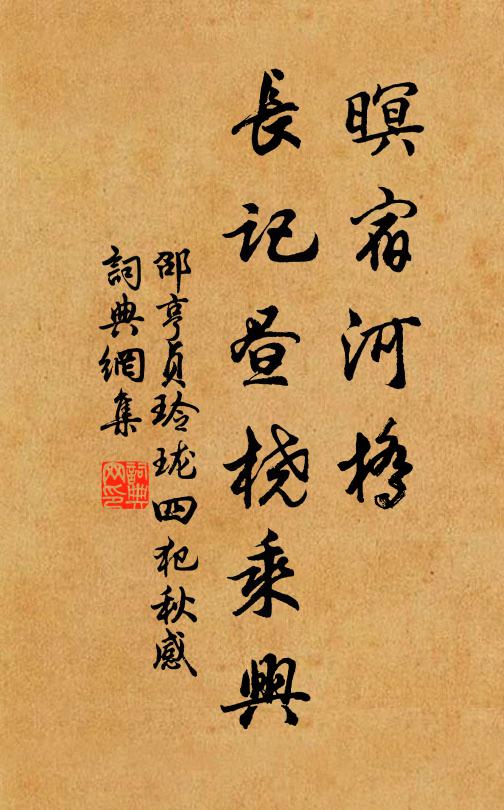 暝宿河橋
長記昼桡乘興
邵亨貞玲珑四犯秋感
詞典網集
詞典
网印